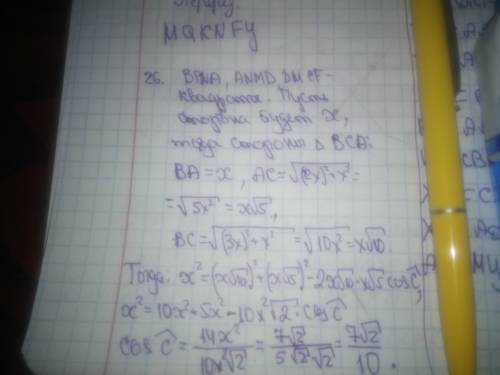 MQKNFY
26. BPNA, ANMD, DMCF-
квадраты. Пусть
сторона будет x,
тогда стороны Δ BCA:
BA = x, AC = √(2x)²+x² =
= √5x² = x√5,
BC = √(3x)²+x² = √10x² = x√10.
Тогда x² = (x√10)²+(x√5)² - 2x√10·x√5 cos Ĉ,
x² = 10x²+5x²-10x²√2·cos Ĉ
cos Ĉ = 14x²/10x²√2 = 7√2/5√2√2 = 7√2/10.